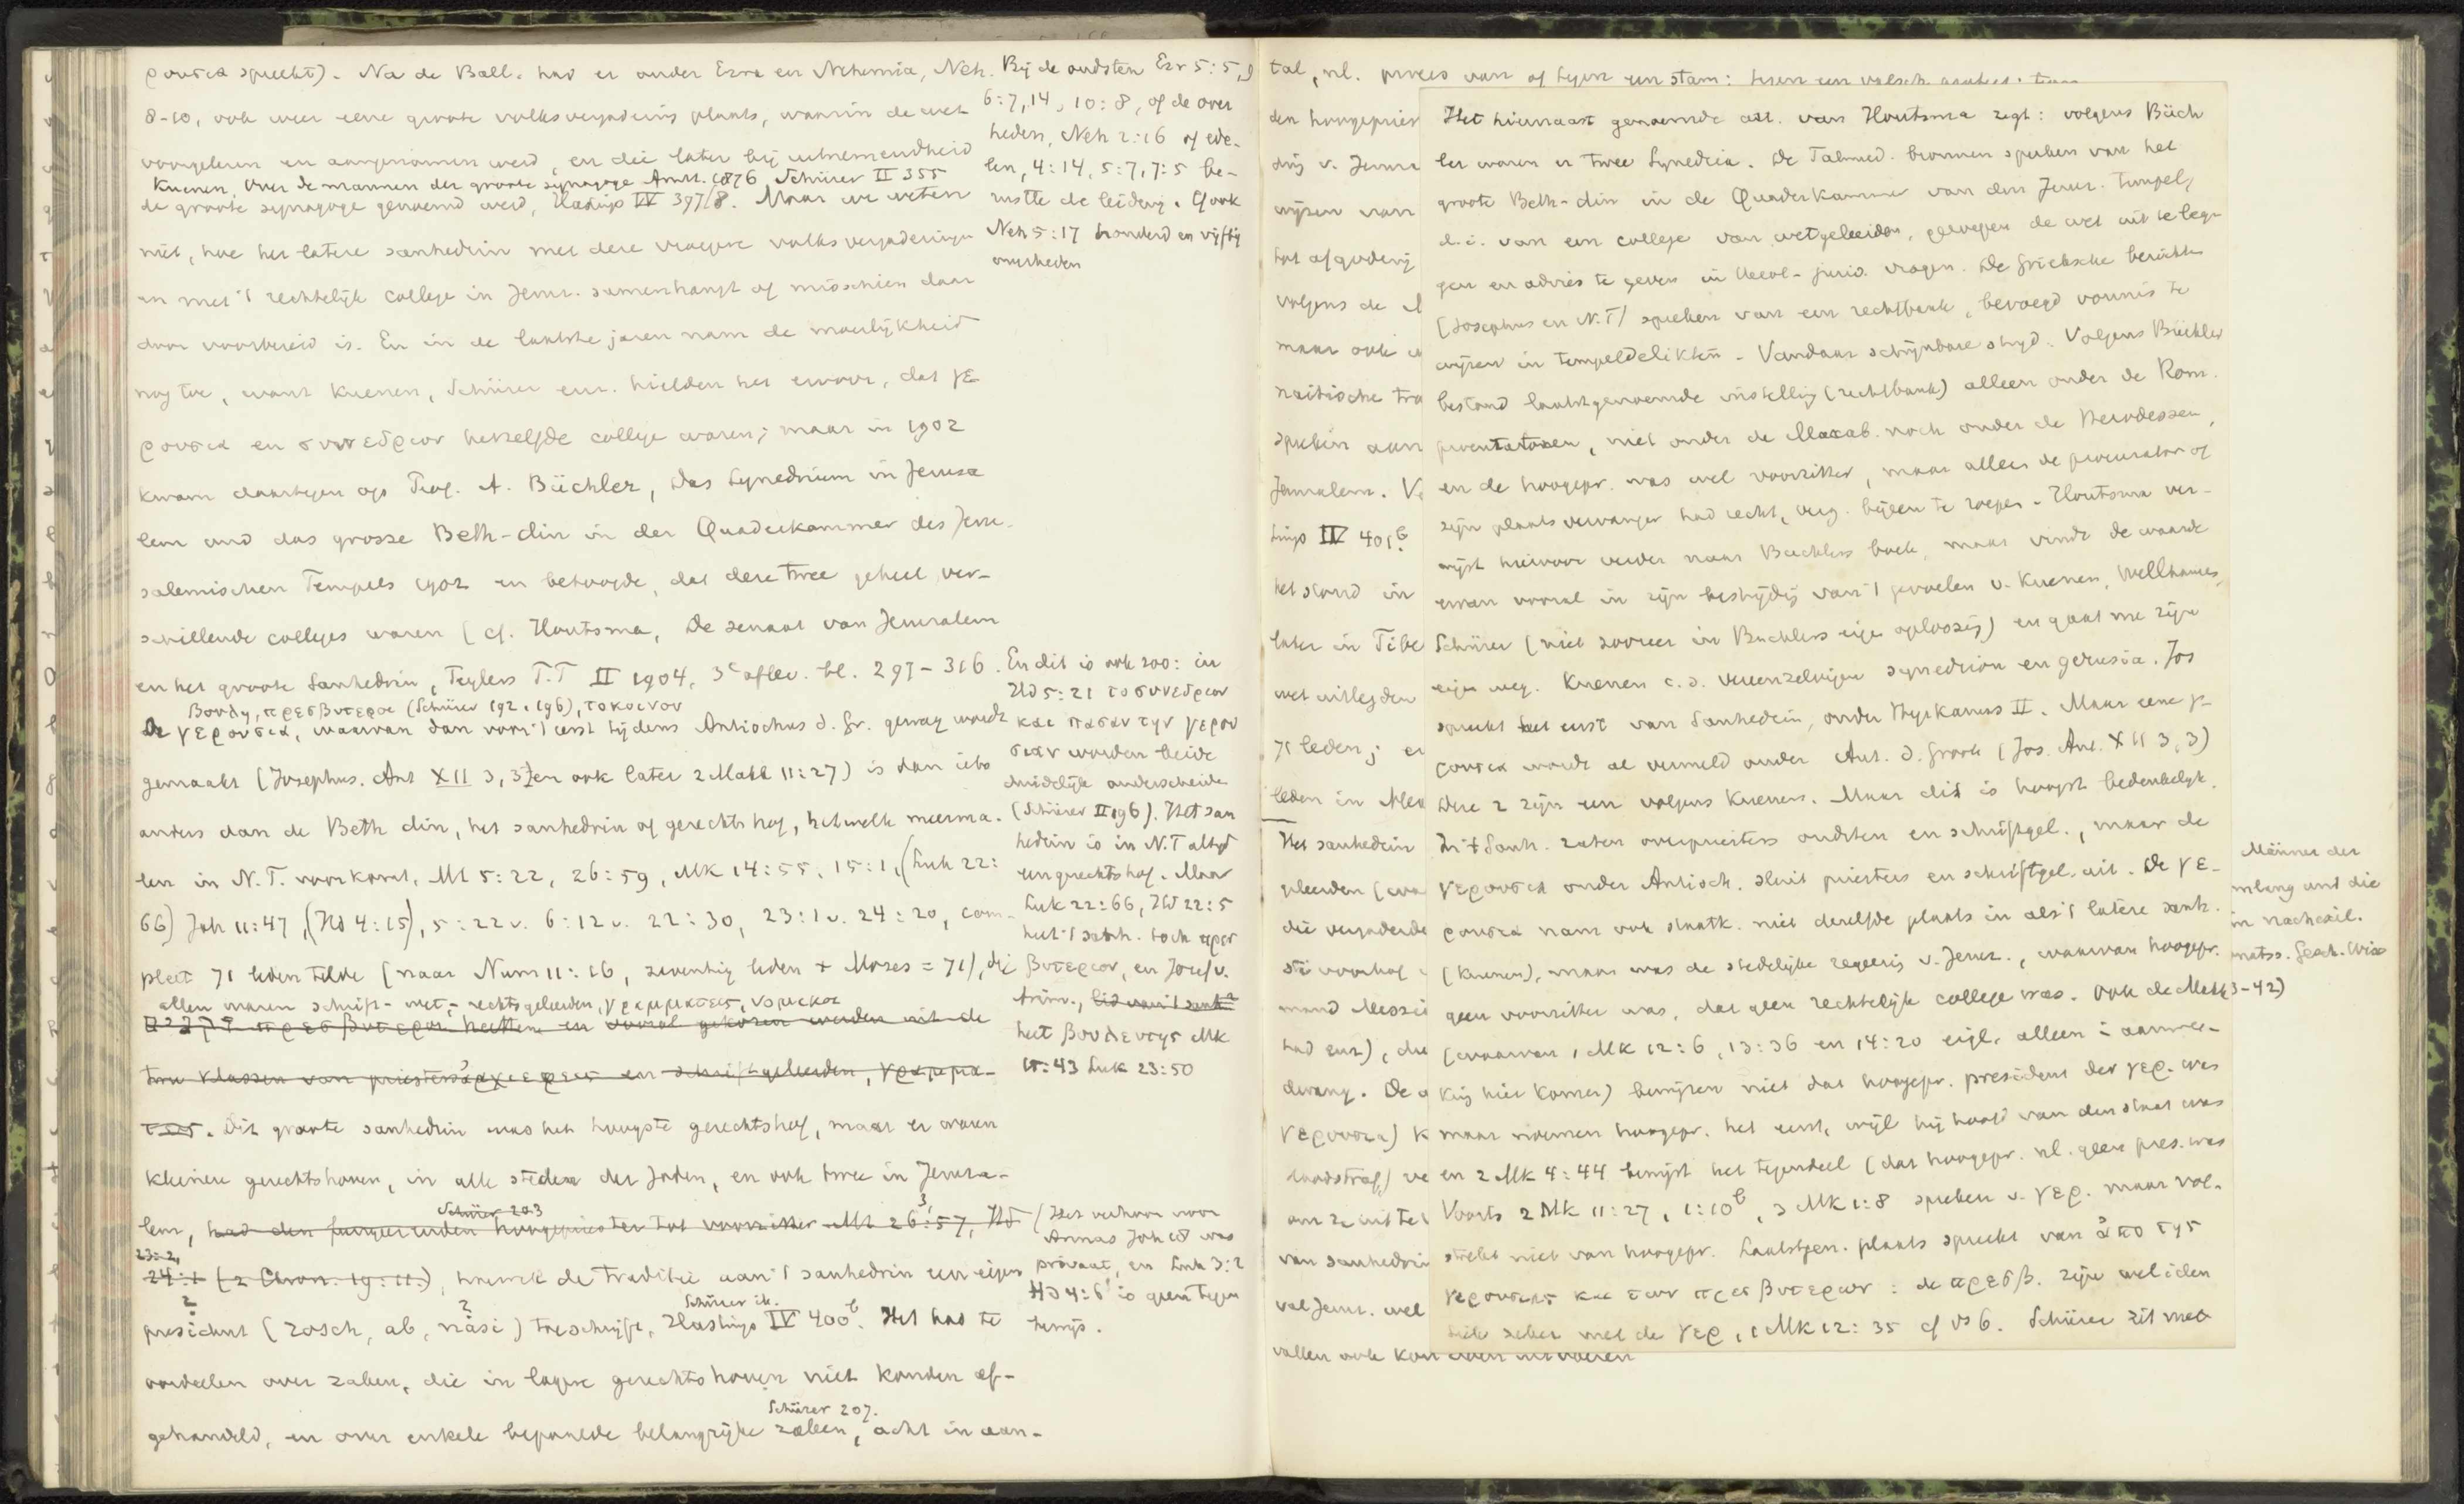 ρουσια spreekt). Na de Ball. had er onder Ezra en Nehemia, Neh.
8-10, ook weer eene groote volksvergadering plaats, waarin de wet
voorgelezen en aangenomen werd, en die later bij uitnemendheid
Kuenen, Over de mannen der groote synagoge Amst. 1876 Schürer II 355
de groote synagoge genoemd werd, Hastings IV 397/8. Maar we weten
niet, hoe het latere sanhedrin met deze vroegere volksvergaderingen
en met 't rechtelijk college in Jeruz. samenhangt of misschien daar
door voorbereid is. En in de laatste jaren nam de moeilijkheid
nog toe, want Kuenen, Schürer enz. hielden het ervoor, dat γε
ρουσια en συνεδριον hetzelfde college waren; maar in 1902
kwam daartegen op Prof. A. Büchler, Das Synedrium in Jerusa
lem und das grosse Beth-din in der Quaderkammer des Jeru-
salemischen Tempels 1902 en betoogde, dat deze twee geheel ver-
schillende colleges waren (cf. Houtsma, De senaat van Jeruzalem
en het groote Sanhedrin, Teylers T.T II 1904, 3e aflev. bl. 297-316.
Βουλη, πρεσβυτεροι (Schürer 192. 196), το κοινον
De γερουσια, waarvan dan voor 't eerst tijdens Antiochus d. Gr. gewag wordt
gemaakt (Josephus. Ant XII 3, 3) en ook later 2 Makk 11:27) is dan iets
anders dan de Beth din, het sanhedrin of gerechtshof, hetwelk meerma-
len in N.T. voorkomt, Mt 5:22, 26:59, Mk 14:55, 15:1, (Luk 22:
66) Joh 11:47, (Hd 4:15), 5:22v. 6:12v. 22:30, 23:1v. 24:20, com-
pleet 71 leden telde (naar Num 11:16, zeventig leden + Mozes = 71), die
allen waren schrift- wet- rechtsgeleerden, γραμματεις, νομικοι
πρεσβυτεροι heetten en vooral gekozen werden uit de
twee klassen van priesters ἀρχιερεις en schriftgeleerden, γραμμα-
τεις. Dit groote sanhedrin was het hoogste gerechtshof, maar er waren
kleinere gerechtshoven, in alle steden der Joden, en ook twee in Jeruza-
Schürer 203
lem, had den fungeerenden hoogepriester tot voorzitter Mt 26:3, 57, Hd
23:2,
24:1 (2 Chron. 19:11.), hoewel de traditie aan 't sanhedrin een eigen
Schürer ib.
president (rosch, ab, nasi) toeschrijft, Hastings IV 400b. Het had te
oordeelen over zaken, die in lagere gerechtshoven niet konden af-
Schürer 207.
gehandeld, en over enkele bepaalde belangrijke zaken, acht in aan-
Bij de oudsten Ezr 5:5, 9
6:7, 14, 10:8, of de over
heden, Neh 2:16 of ede-
len, 4:14, 5:7, 7:5 be-
rustte de leiding. Ook
Neh 5:17 honderd en vijftig
overheden
En dit is ook zoo: in
Hd 5:21 το συνεδριον
και πασαν την γερου
σιαν worden beide
duidelijk onderscheiden
(Schürer II 196). Het san
hedrin is in N.T altijd
een gerechtshof. Maar
Luk 22:66, Hd 22:5
heet 't sanh. toch πρεσ
βυτεριον, en Jozef v.
Arim., lid van 't sanh.
heet βουλευτης Mk
15:43 Luk 23:50
(Het verhoor voor
Annas Joh 18 was
privaat, en Luk 3:2
Hd 4:6 is geen tegen
bewijs.
tal, nl. proces van of tegen een stam:
den hoogepries
ding v. Jeruz
wijzen van
tot afgoderij
volgens de
maar ook
naitische tra
spreken aan
Jeruzalem. V
tings IV 401b.
het stond in
later in Tibe
wet uitlegden
71 leden; en
leden in Alex
Het sanhedrin
die vergaderde
had enz), die
dwang. De
γερουσια) k
doodstraf,) ve
om ze uit te
van sanhedri
val Jeruz. wel
vallen ook
Het hiernaast genoemde art. van Houtsma zegt: volgens Büch
ler waren er twee Synedria. De Talmud. bronnen spreken van het
groote Beth-din in de Quaderkammer van den Jeruz. tempel,
d.i. van een college van wetgeleerden, geroepen de wet uit te leg-
gen en advies te geven in theol-jurid. vragen. De Grieksche berichten
(Josephus en N.T) spreken van een rechtbank, bevoegd vonnis te
wijzen in tempeldelikten. Vandaar schijnbare strijd. Volgens Büchler
bestond laatstgenoemde instelling (rechtbank) alleen onder de Rom.
procuratoren, niet onder de Maccab. noch onder de Herodessen,
en de hoogepr. was wel voorzitter, maar alleen de procurator of
zijn plaatsvervanger had recht, verg. bijeen te roepen. Houtsma ver-
wijst hiervoor verder naar Büchlers boek, maar vindt de waarde
ervan vooral in zijn bestrijding van 't gevoelen v. Kuenen, Wellhausen,
Schürer (niet zoozeer in Büchlers eigen oplossing) en gaat nu zijn
eigen weg. Kuenen c.s. vereenzelvigen synedrion en gerusia. Jos
spreekt het eerst van Sanhedrin, onder Hyrkanus II. Maar eene γε
ρουσια wordt al vermeld onder Ant. d. Groote (Jos. Ant. XII 3, 3)
Deze 2 zijn een volgens Kuenen. Maar dit is hoogst bedenkelijk.
In 't Sanh. zaten overpriesters oudsten en schriftgel., maar de
γερουσια onder Antioch. sluit priesters en schriftgel. uit. De γε-
ρουσια nam ook staatk. niet dezelfde plaats in als 't latere sanh.
(Kuenen), maar was de stedelijke regeering v. Jeruz., waarvan hoogepr.
geen voorzitter was, dat geen rechtelijk college was. Ook de Makk
(waarvan 1 Mk 12:6, 13:36 en 14:20 eigl. alleen in aanmer-
king hier komen) bewijzen niet dat hoogepr. president der γερ. was
maar noemen hoogepr. het eerst, wijl hij hoofd van den staat was
en 2 Mk 4:44 bewijst het tegendeel (dat hoogepr. nl. geen pres. was
Voorts 2 Mk 11:27, 1:10b, 3 Mk 1:8 spreken v. γερ. maar vol-
strekt niet van hoogepr. Laatstgen. plaats spreekt van ἀπο της
γερουσιας και των πρεσβυτερων: de πρεσβ. zijn wel iden
tiek zeker met de γερ, 1 Mk 12:35 cf vs 6. Schürer zit met
Männer der
mlung und die
in nachexil.
matss. Gesch. Wiss
3-42)